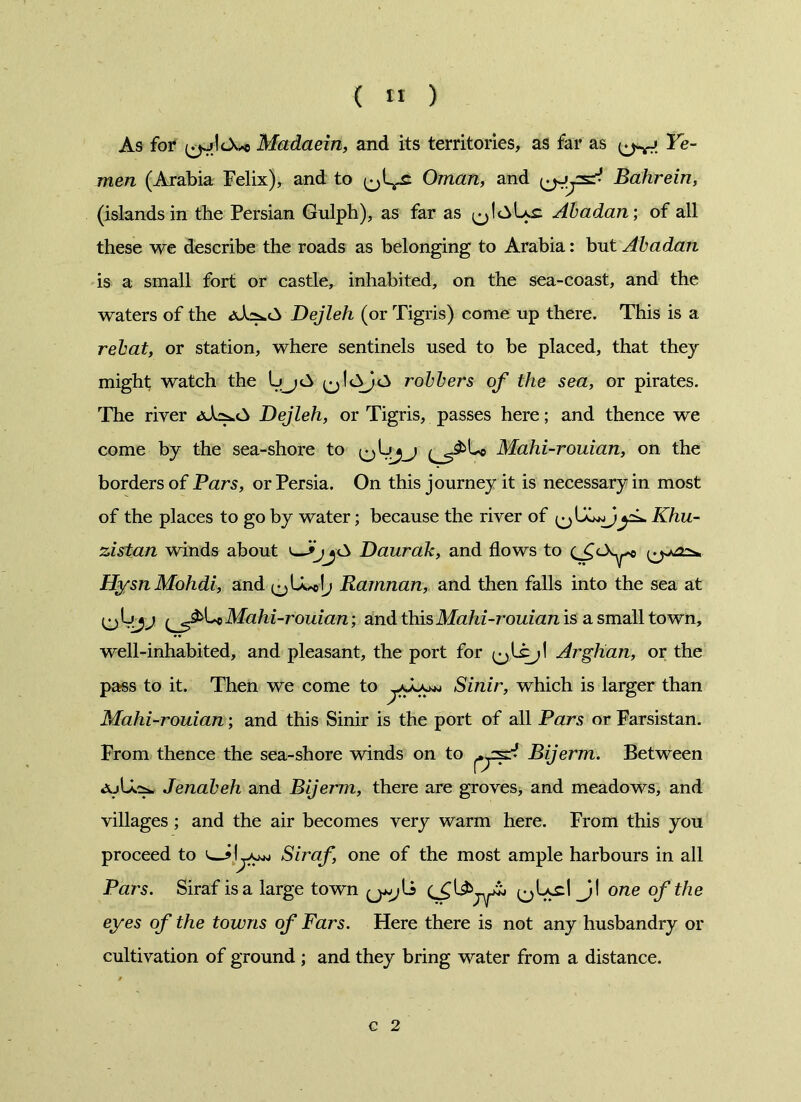 ( 11 )
As for مداین Madaein, and its territories, as far as یمن Ye-
men (Arabia Felix), and to عمان Oman, and بحرین Bahrein,
(islands in the Persian Gulph), as far as عبادان Abadan; of all
these we describe the roads as belonging to Arabia: but Abadan
is a small fort or castle, inhabited, on the sea-coast, and the
waters of the دجله Dejleh (or Tigris) come up there. This is a
rebat, or station, where sentinels used to be placed, that they
might watch the دزدان دریا robbers of the sea, or pirates.
The river دجله Dejleh, or Tigris, passes here; and thence we
come by the sea-shore to ماهی رویان Mahi-rouian, on the
borders of Pars, or Persia. On this journey it is necessary in most
of the places to go by water; because the river of خوزستان Khu-
zistan winds about دورق Daurak, and flows to حصن مهدی
Hysn Mohdi, and رامنان Ramnan, and then falls into the sea at
ماهی رویان Mahi-rouian; and this Mahi-rouian is a small town,
well-inhabited, and pleasant, the port for ارغان Arghan, or the
pass to it. Then we come to سینیر Sinir, which is larger than
Mahi-rouian; and this Sinir is the port of all Pars or Farsistan.
From thence the sea-shore winds on to بجیرم Bijerm. Between
جنابه Jenabeh and Bijerm, there are groves, and meadows, and
villages; and the air becomes very warm here. From this you
proceed to سیراف Siraf, one of the most ample harbours in all
Pars. Siraf is a large town از اعیان شهرهای فارس one of the
eyes of the towns of Fars. Here there is not any husbandry or
cultivation of ground; and they bring water from a distance.
C 2